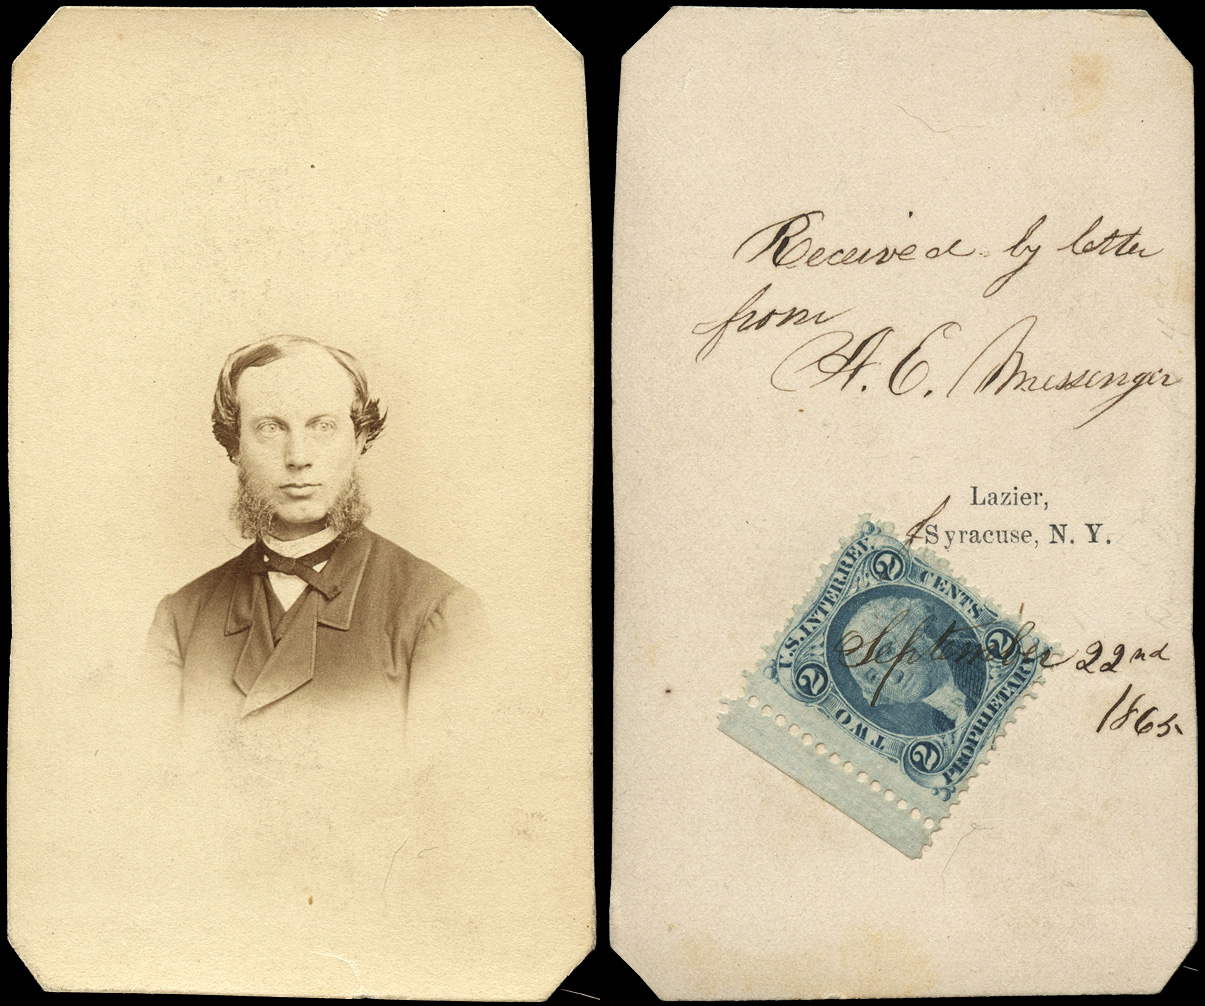 Received by letter
from
A. E. Messenger
Lazier,
Syracuse, N. Y.
September 22nd
1865
U.S. INTER. REV.
2 CENTS 2
PROPRIETARY
2 TWO 2